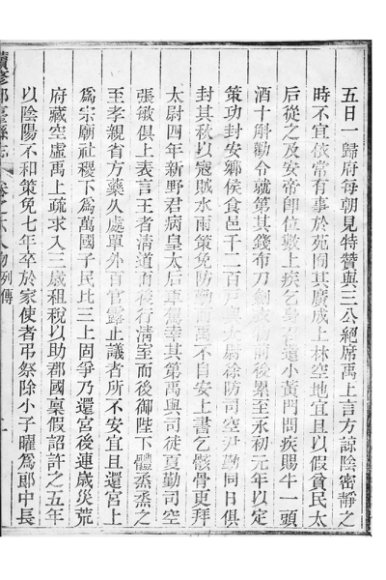 五日一歸府每朝見特贊與三公絕席禹上言方諒陰密靜之
時不宜依常有事於苑囿其廣成上林空地宜且以假貧民太
后從之及安帝卽位數上疾乞身詔遣小黃門問疾賜牛一頭
酒十斛勸令就第其錢布刀劍衣物前後累至永初元年以定
策功封安鄉侯食邑千二百戶與太尉徐防司空尹勤同日俱
封其秋以寇賊水雨策免防勤而禹不自安上書乞骸骨更拜
太尉四年新野君病皇太后車駕幸其第禹與司徒夏勤司空
張敏俱上表言王者清道而後行清室而後御陛下體烝烝之
至孝親省方藥久處單外百官露止議者所不安宜且還宮上
爲宗廟社稷下爲萬國子民比三上固爭乃還宮後連歲災荒
府藏空虛禹上疏求入三歲租稅以助郡國稟假詔許之五年
以陰陽不和策免七年卒於家使者弔祭除小子曜爲郞中長
續修邢臺縣志 卷之六人物列傳